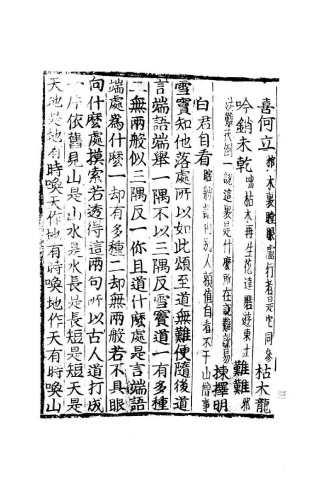 喜何立棺木裏瞠眼盧行者是它同參枯木龍
吟銷未乾咄枯木再生花達磨遊東土難難邪
法難扶倒一說這裏是什麼所在說難說易揀擇明
白君自看瞎將謂由別人賴值自看不干山僧事
雪竇知他落處所以如此頌至道無難便隨後道
言端語端舉一隅不以三隅反雪竇道一有多種
二無兩般似三隅反一你且道什麼處是言端語
端處為什麼一却有多種二却無兩般若不具眼
向什麼處摸索若透得這兩句所以古人道打成
一片依舊見山是山水是水長是長短是短天是
天地是地有時喚天作地有時喚地作天有時喚山